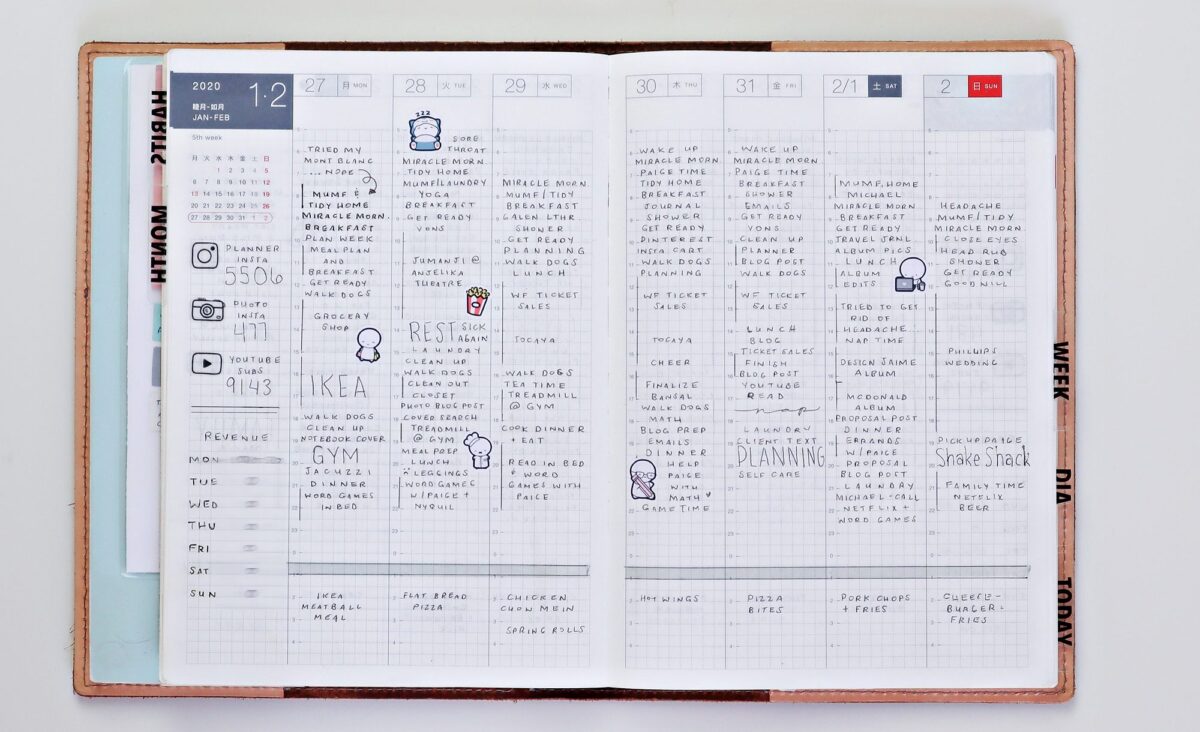 HABITS
MONTH
2020
1·2
睦月-如月
JAN-FEB
5th week
月 火 水 木 金 土 日
1 2 3 4 5
6 7 8 9 10 11 12
13 14 15 16 17 18 19
20 21 22 23 24 25 26
27 28 29 30 31 1 2
PLANNER
INSTA
5506
PHOTO
INSTA
477
YOUTUBE
SUBS
9143
REVENUE
MON
TUE
WED
THU
FRI
SAT
SUN
27 月 MON
TRIED MY
MONT BLANC
... NOPE
MUMF &
TIDY HOME
MIRACLE MORN.
BREAKFAST
PLAN WEEK
MEAL PLAN
AND
BREAKFAST
GET READY
WALK DOGS
GROCERY
SHOP
IKEA
WALK DOGS
CLEAN UP
NOTEBOOK COVER
GYM
JACUZZI
DINNER
WORD GAMES
IN BED
IKEA
MEATBALL
MEAL
28 火 TUE
zzz
SORE
THROAT
MIRACLE MORN.
TIDY HOME
MUMF/LAUNDRY
YOGA
BREAKFAST
GET READY
VONS
JUMANJI @
ANJELIKA
THEATRE
REST SICK
AGAIN
LAUNDRY
CLEAN UP
WALK DOGS
CLEAN OUT
CLOSET
PHOTO BLOG POST
COVER SEARCH
TREADMILL
@ GYM
MEAL PREP
LUNCH
LEGGINGS
WORD GAMES
W/PAIGE +
NYQUIL
FLAT BREAD
PIZZA
29 水 WED
MIRACLE MORN.
MUMF/TIDY
BREAKFAST
GALEN LTHR.
SHOWER
GET READY
PLANNING
WALK DOGS
LUNCH
WF TICKET
SALES
TOCAYA
WALK DOGS
TEA TIME
TREADMILL
@ GYM
COOK DINNER
+ EAT
READ IN BED
+ WORD
GAMES WITH
PAIGE
CHICKEN
CHOW MEIN
SPRING ROLLS
30 木 THU
WAKE UP
MIRACLE MORN.
PAIGE TIME
TIDY HOME
BREAKFAST
JOURNAL
SHOWER
GET READY
PINTEREST
INSTA CART
WALK DOGS
PLANNING
WF TICKET
SALES
TOCAYA
CHEER
FINALIZE
BANSAL
WALK DOGS
MATH
BLOG PREP
EMAILS
DINNER
HELP
PAIGE
WITH
MATH
GAME TIME
HOT WINGS
31 金 FRI
WAKE UP
MIRACLE MORN.
PAIGE TIME
BREAKFAST
SHOWER
EMAILS
GET READY
VONS
CLEAN UP
PLANNER
BLOG POST
WALK DOGS
WF TICKET
SALES
LUNCH
BLOG
TICKET SALES
FINISH
BLOG POST
YOUTUBE
READ
nap
LAUNDRY
CLIENT TEXT
PLANNING
SELF CARE
PIZZA
BITES
2/1 土 SAT
MUMF, HOME
MICHAEL
MIRACLE MORN.
BREAKFAST
GET READY
TRAVEL JRNL
ALBUM PICS
LUNCH
ALBUM
EDITS
TRIED TO GET
RID OF
HEADACHE...
NAP TIME
DESIGN JAIME
ALBUM
MCDONALD
ALBUM
PROPOSAL POST
DINNER
ERRANDS
W/PAIGE
PROPOSAL
BLOG POST
LAUNDRY
MICHAEL-CALL
NETFLIX +
WORD GAMES
PORK CHOPS
+ FRIES
2 日 SUN
HEADACHE
MUMF/TIDY
MIRACLE MORN.
CLOSE EYES
HEAD RUB
SHOWER
GET READY
GOODWILL
PHILLIPS
WEDDING
PICK UP PAIGE
Shake Shack
FAMILY TIME
NETFLIX
BEER
CHEESE-
BURGER +
FRIES
WEEK
DIA
TODAY